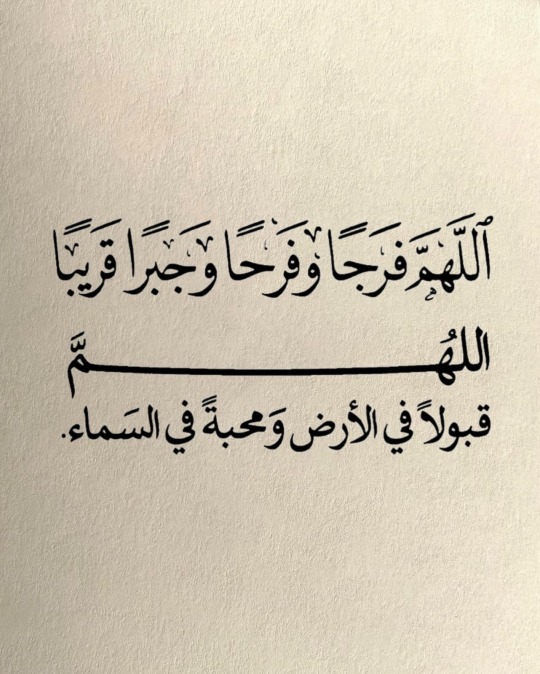 ٱللَّهُمَّ فَرَجًا وَفَرَحًا وَجَبرًا قَرِيبًا
اللهُـــــــــــمَّ
قبولاً في الأرض وَمحبةً في السَماء.